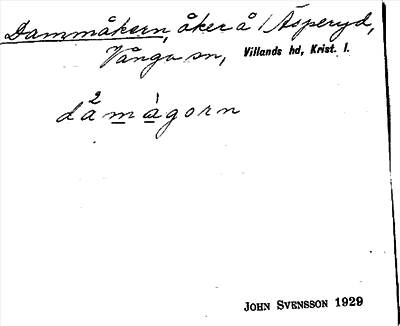 Dammåkern, åker å 1 Äsperyd,
Vånga sn, Villands hd, Krist. l.
då²màgorn
JOHN SVENSSON 1929